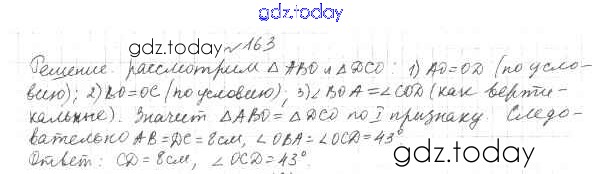 gdz.today
gdz.today № 163
Решение. рассмотрим △ ABO и △ DCO: 1) AO=OD (по усло-
вию); 2) BO=OC (по условию); 3) ∠BOA = ∠COD (как верти-
кальные). Значит △ABO = △DCO по I признаку. Следо-
вательно AB=DC=8см, ∠OBA=∠OCD=43°
Ответ: CD=8см, ∠OCD=43°.
gdz.today